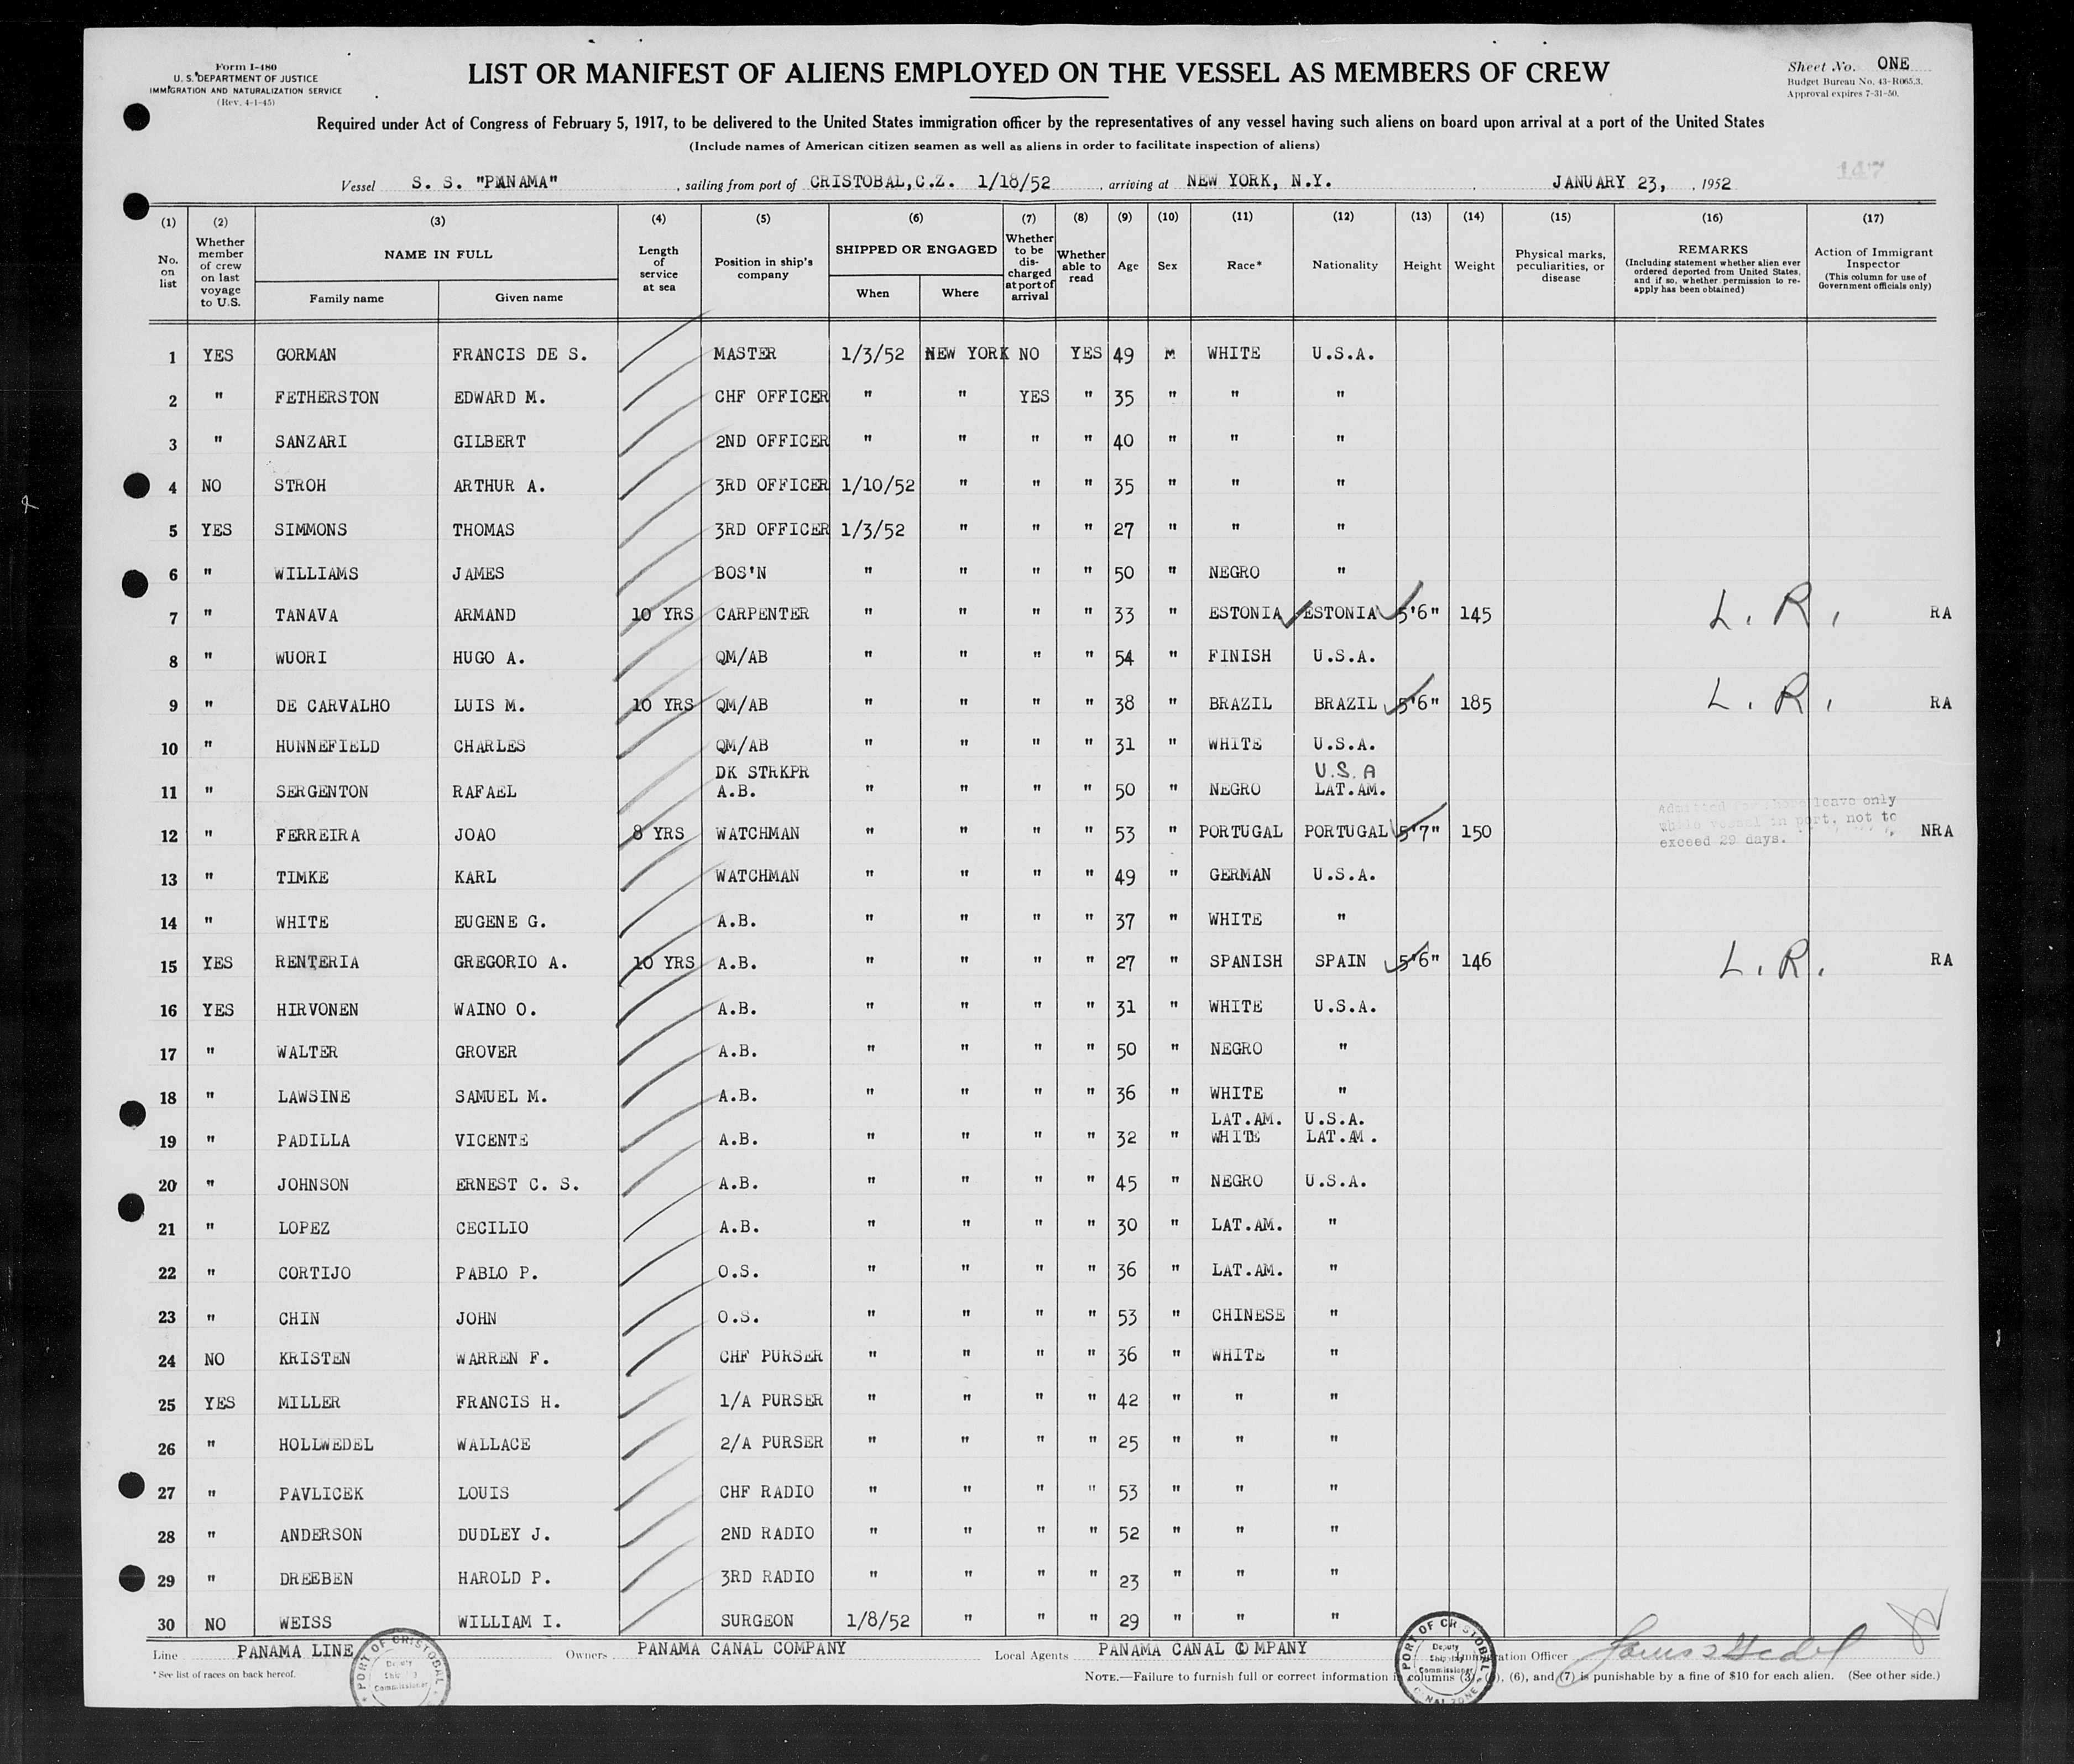 Form I-480
U. S. DEPARTMENT OF JUSTICE
IMMIGRATION AND NATURALIZATION SERVICE
(Rev. 4-1-45)
LIST OR MANIFEST OF ALIENS EMPLOYED ON THE VESSEL AS MEMBERS OF CREW
Sheet No. ONE
Budget Bureau No. 43-R065.3.
Approval expires 7-31-50.
Required under Act of Congress of February 5, 1917, to be delivered to the United States immigration officer by the representatives of any vessel having such aliens on board upon arrival at a port of the United States
(Include names of American citizen seamen as well as aliens in order to facilitate inspection of aliens)
147
Vessel S. S. "PANAMA" , sailing from port of CRISTOBAL,C.Z. 1/18/52 , arriving at NEW YORK, N.Y. , JANUARY 23, , 1952
(1) (2) (3) (4) (5) (6) (7) (8) (9) (10) (11) (12) (13) (14) (15) (16) (17)
No. on list
Whether member of crew on last voyage to U.S.
NAME IN FULL
Family name
Given name
Length of service at sea
Position in ship's company
SHIPPED OR ENGAGED
When
Where
Whether to be discharged at port of arrival
Whether able to read
Age
Sex
Race*
Nationality
Height
Weight
Physical marks, peculiarities, or disease
REMARKS
(Including statement whether alien ever ordered deported from United States, and if so, whether permission to re-apply has been obtained)
Action of Immigrant Inspector
(This column for use of Government officials only)
1 YES GORMAN FRANCIS DE S. MASTER 1/3/52 NEW YORK NO YES 49 M WHITE U.S.A.
2 " FETHERSTON EDWARD M. CHF OFFICER " " YES " 35 " " "
3 " SANZARI GILBERT 2ND OFFICER " " " " 40 " " "
4 NO STROH ARTHUR A. 3RD OFFICER 1/10/52 " " " 35 " " "
5 YES SIMMONS THOMAS 3RD OFFICER 1/3/52 " " " 27 " " "
6 " WILLIAMS JAMES BOS'N " " " " 50 " NEGRO "
7 " TANAVA ARMAND 10 YRS CARPENTER " " " " 33 " ESTONIA ESTONIA 5'6" 145 L. R. RA
8 " WUORI HUGO A. QM/AB " " " " 54 " FINISH U.S.A.
9 " DE CARVALHO LUIS M. 10 YRS QM/AB " " " " 38 " BRAZIL BRAZIL 5'6" 185 L. R. RA
10 " HUNNEFIELD CHARLES QM/AB " " " " 31 " WHITE U.S.A.
DK STRKPR U.S.A
11 " SERGENTON RAFAEL A.B. " " " " 50 " NEGRO LAT.AM.
Admitted for shore leave only
while vessel in port, not to
exceed 29 days.
12 " FERREIRA JOAO 8 YRS WATCHMAN " " " " 53 " PORTUGAL PORTUGAL 5'7" 150 NRA
13 " TIMKE KARL WATCHMAN " " " " 49 " GERMAN U.S.A.
14 " WHITE EUGENE G. A.B. " " " " 37 " WHITE "
15 YES RENTERIA GREGORIO A. 10 YRS A.B. " " " " 27 " SPANISH SPAIN 5'6" 146 L. R. RA
16 YES HIRVONEN WAINO O. A.B. " " " " 31 " WHITE U.S.A.
17 " WALTER GROVER A.B. " " " " 50 " NEGRO "
18 " LAWSINE SAMUEL M. A.B. " " " " 36 " WHITE "
LAT.AM. U.S.A.
19 " PADILLA VICENTE A.B. " " " " 32 " WHITE LAT.AM.
20 " JOHNSON ERNEST C. S. A.B. " " " " 45 " NEGRO U.S.A.
21 " LOPEZ CECILIO A.B. " " " " 30 " LAT.AM. "
22 " CORTIJO PABLO P. O.S. " " " " 36 " LAT.AM. "
23 " CHIN JOHN O.S. " " " " 53 " CHINESE "
24 NO KRISTEN WARREN F. CHF PURSER " " " " 36 " WHITE "
25 YES MILLER FRANCIS H. 1/A PURSER " " " " 42 " " "
26 " HOLLWEDEL WALLACE 2/A PURSER " " " " 25 " " "
27 " PAVLICEK LOUIS CHF RADIO " " " " 53 " " "
28 " ANDERSON DUDLEY J. 2ND RADIO " " " " 52 " " "
29 " DREEBEN HAROLD P. 3RD RADIO " " " " 23 " " "
30 NO WEISS WILLIAM I. SURGEON 1/8/52 " " " 29 " " "
Line PANAMA LINE Owners PANAMA CANAL COMPANY Local Agents PANAMA CANAL COMPANY Immigration Officer
* See list of races on back hereof.
NOTE.—Failure to furnish full or correct information in columns (3), (6), and (7) is punishable by a fine of $10 for each alien. (See other side.)
PORT OF CRISTOBAL
Deputy
Shipping
Commissioner
PORT OF CRISTOBAL
Deputy
Shipping
Commissioner
CANAL ZONE